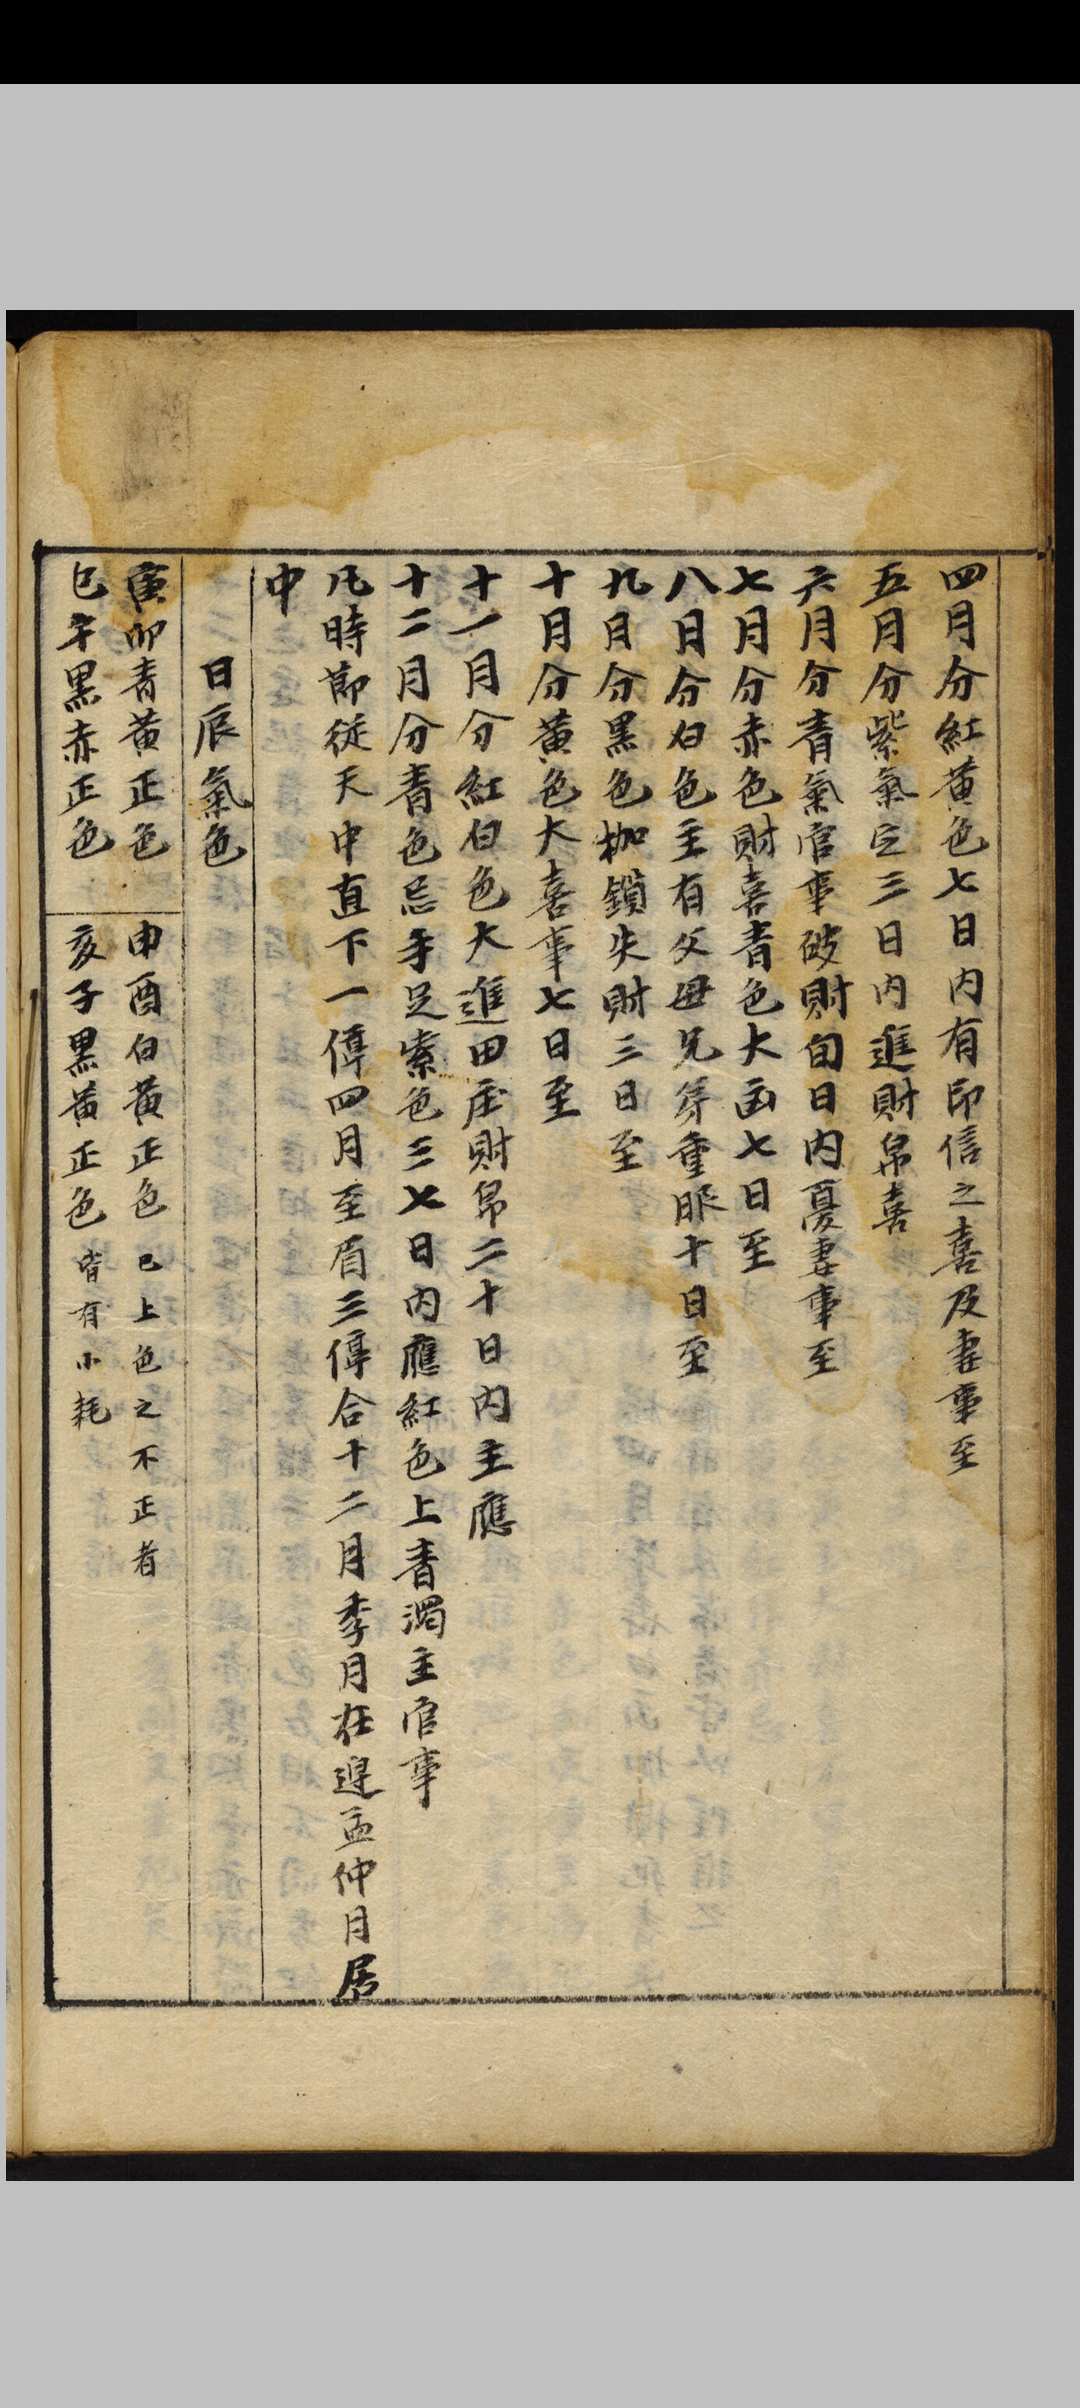 四月分紅黃色七日內有印信之喜及妻事至
五月分紫氣定三日內進財帛喜
六月分青氣官事破財旬日內憂妻事至
七月分赤色財喜青色大凶七日至
八月分白色主有父母兄弟重服十日至
九月分黑色枷鎖失財三日至
十月分黃色大喜事七日至
十一月分紅白色大進田庄財帛二十日內主應
十二月分青色忌手足索色三七日內應紅色上青濁主官事
凡時節從天中直下一停四月至眉三停合十二月季月在邊孟仲月居
中
日辰氣色
寅卯青黃正色
巳午黑赤正色
申酉白黃正色 已上色之不正者
亥子黑黃正色 皆有小耗